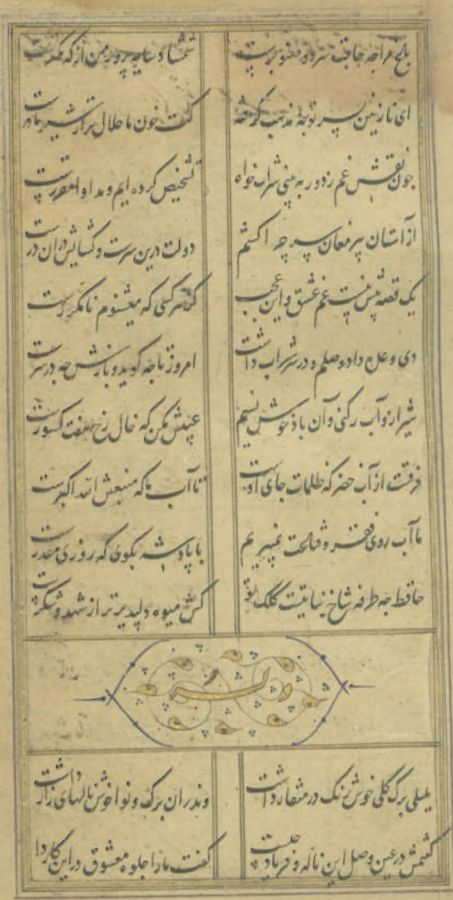 باغ مرا چه حاجت سرو و صنوبرست شمشاد سایه پرور من از که کمترست
ای نازنین پسر تو چه مذهب گرفته کت خون ما حلال تر از شیر مادرست
چون نقش غم ز دور ببینی شراب خواه تشخیص کرده ایم و مداوا مقررست
از آستان پیر مغان سر چرا کشم دولت درین سرست و گشایش دران درست
یک قصه بیش نیست غم عشق و این عجب کز هر کسی که میشنوم نامکررست
دی وعده داد وصلم و در سر شراب داشت امروز تا چه گوید و بازش چه در سرست
شیراز و آب رکنی و آن باد خوش نسیم عیبش مکن که خال رخ هفت کشورست
فرقست از آب خضر که ظلمات جای اوست تا آب ما که منبعش الله اکبرست
ما آب روی فقر و قناعت نمیبریم با پادشه بگوی که روزی مقدرست
حافظ چه طرفه شاخ نباتیست کلک تو کش میوه دلپذیرتر از شهد و شکرست
وله
بلبلی برگ گلی خوش رنگ در منقار داشت وندران برگ و نوا خوش نالهای زار داشت
گفتمش در عین وصل این ناله و فریاد چیست گفت ما را جلوه معشوق در این کار داشت